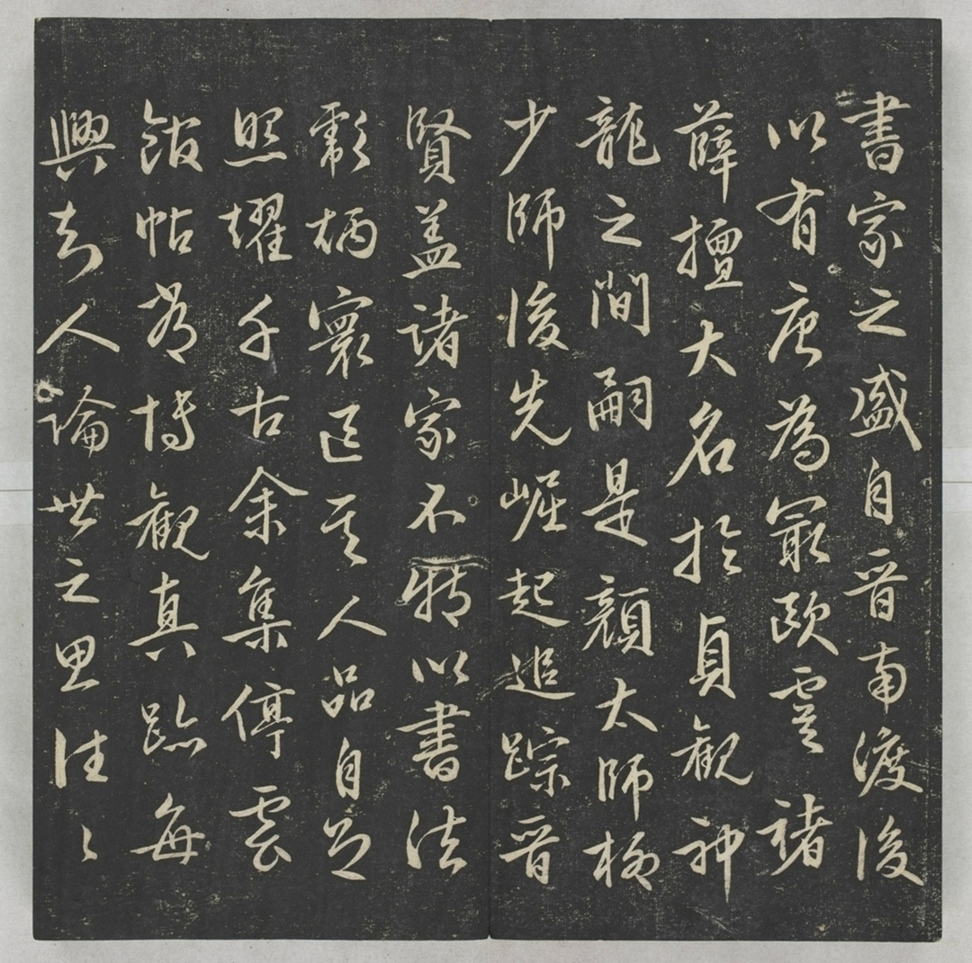 書家之盛自晋南渡後
以有唐為最歐虞諸
薛擅大名於貞觀神
龍之間嗣是顏太師柳
少師後先崛起追踪晋
賢盖諸家不特以書法
彪炳寰區其人品自足
照耀千古余集停雲
館帖博觀真跡每
興知人論世之思往々